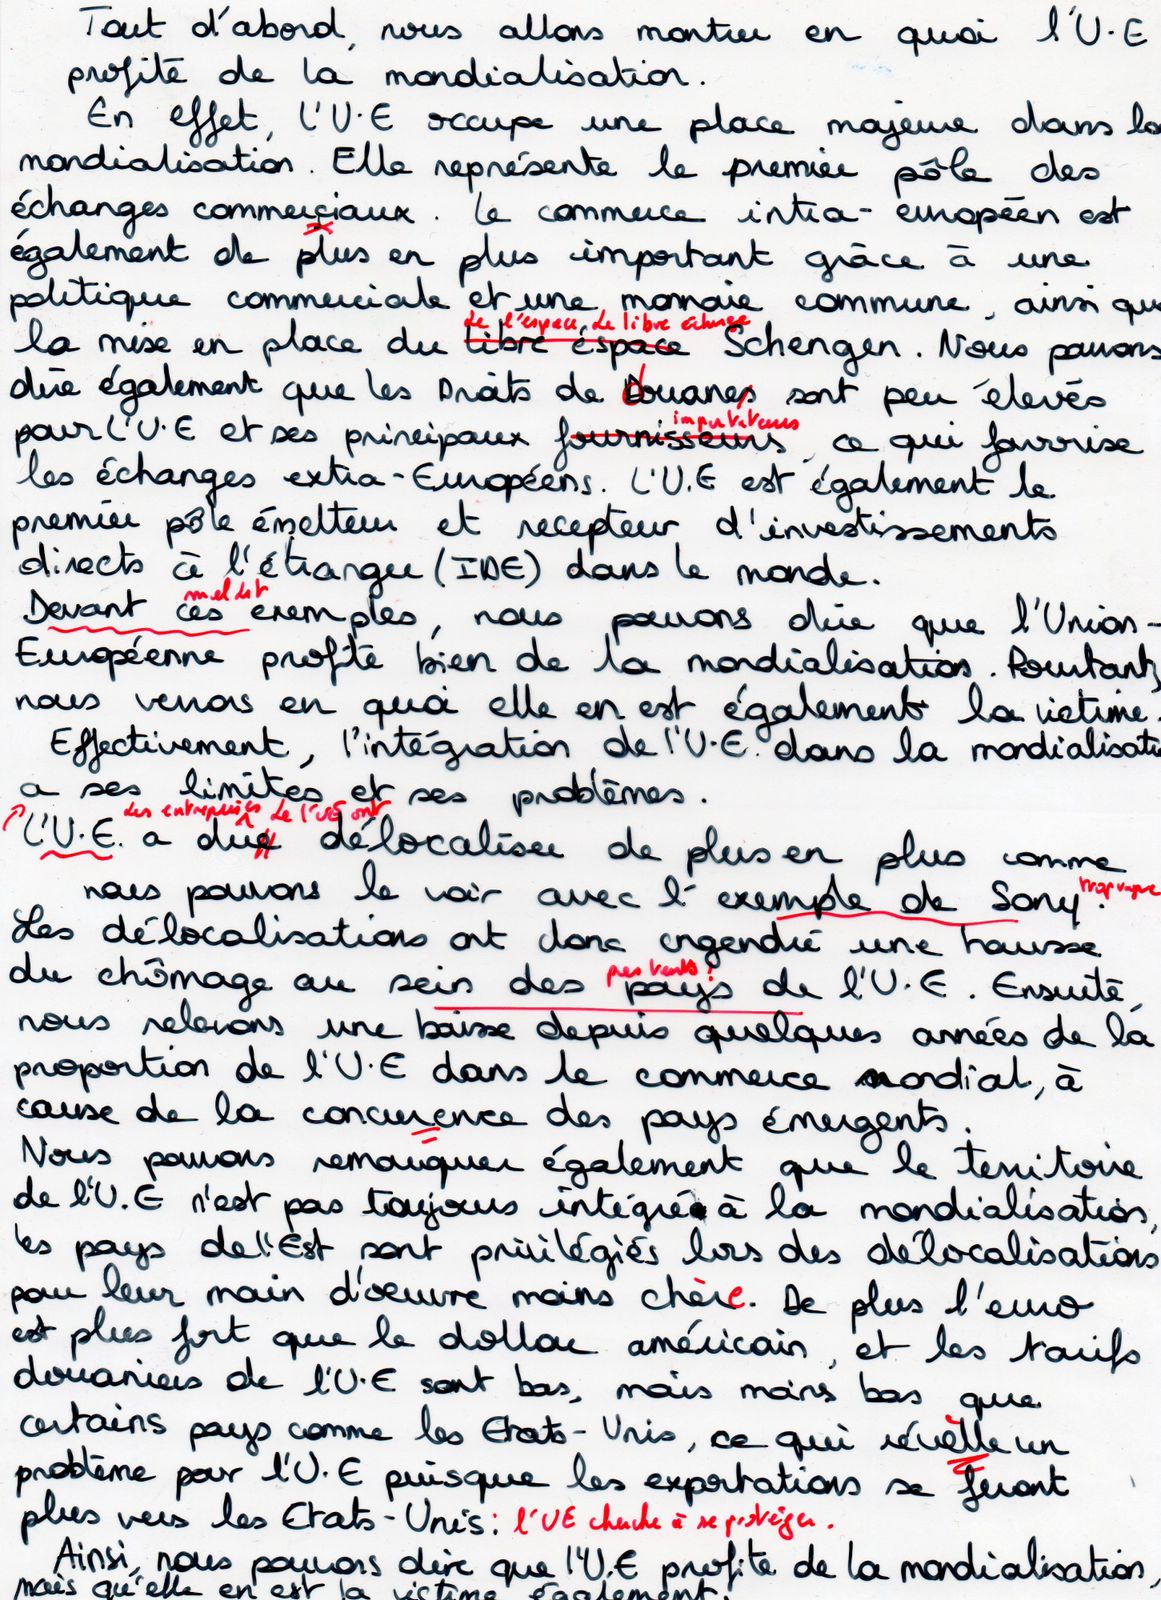 Tout d'abord, nous allons montrer en quoi l'U.E
profite de la mondialisation.
En effet, l'U.E occupe une place majeure dans la
mondialisation. Elle représente le premier pôle des
échanges commerciaux. Le commerce intra-européen est
également de plus en plus important grâce à une
politique commerciale et une monnaie commune, ainsi que
de l'espace de libre échange
la mise en place du libre espace Schengen. Nous pouvons
dire également que les Droits de Douanes sont peu élevés
importateurs
pour l'U.E et ses principaux fournisseurs, ce qui favorise
les échanges extra-Européens. L'U.E est également le
premier pôle émetteur et recepteur d'investissements
directs à l'étranger (IDE) dans le monde.
mal dit
Devant ces exemples, nous pouvons dire que l'Union-
Européenne profite bien de la mondialisation. Pourtant,
nous verrons en quoi elle en est également la victime.
Effectivement, l'intégration de l'U.E. dans la mondialisati
a ses limites et ses problèmes.
des entreprises de l'UE ont
L'U.E. a due délocaliser de plus en plus comme
nous pouvons le voir avec l'exemple de Sony. trop vague
Les délocalisations ont donc engendré une hausse
du chômage au sein des pays de l'U.E. Ensuite,
nous relevons une baisse depuis quelques années de la
proportion de l'U.E dans le commerce mondial, à
cause de la concurence des pays émergents.
Nous pouvons remarquer également que le territoire
de l'U.E n'est pas toujours intégré à la mondialisation,
les pays de l'Est sont privilégiés lors des délocalisations
pour leur main d'oeuvre moins chère. De plus l'euro
est plus fort que le dollar américain, et les tarifs
douaniers de l'U.E sont bas, mais moins bas que
certains pays comme les Etats-Unis, ce qui révèlle un
problème pour l'U.E puisque les exportations se feront
plus vers les Etats-Unis: l'UE cherche à se protéger.
Ainsi, nous pouvons dire que l'U.E profite de la mondialisation,
mais qu'elle en est la victime également.